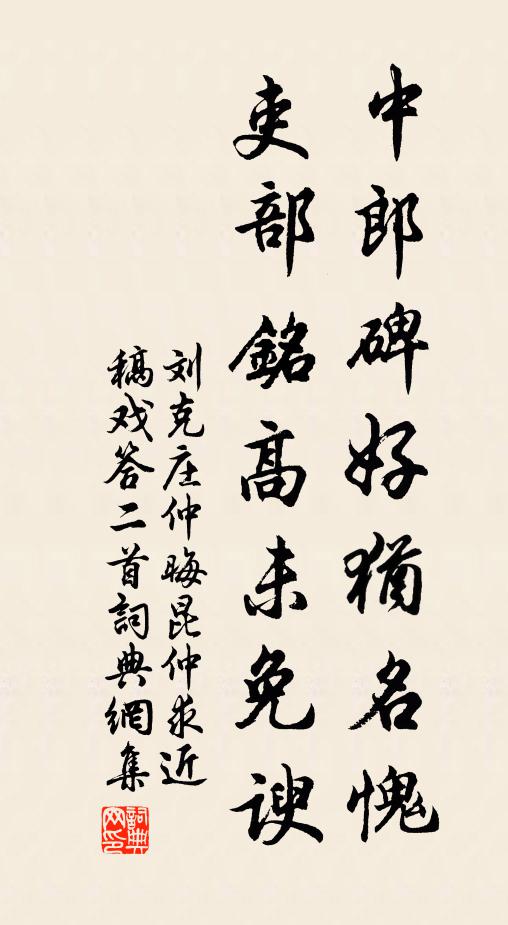 中郎碑好猶名愧
吏部銘高未免諛
刘克庄仲晦昆仲求近
稿戏答二首詞典網集
詞典
网印